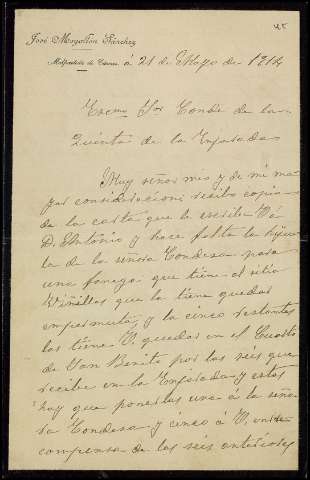 José Mogollón Sánchez
Malpartida de Cáceres á 21 de Mayo de 1914
Excmo Sor Conde de la
Quinta de la Enjarada
Muy señor mio y de mi ma
yor consideración: recibo copia
de la carta que le escribe V á
D. Antonio y hace falta la hijue
la de la señora Condesa para
una fanega que tiene al sitio
Viñillas que la tiene quedar
en permuta, y la cinco restantes
las tiene V. quedar en el Cuarto
de San Benito por las seis que
recibe en la Enjarada y estas
hay que ponerlas una á la seño
ra Condesa y cinco á V. en
compensa de las seis anteriores